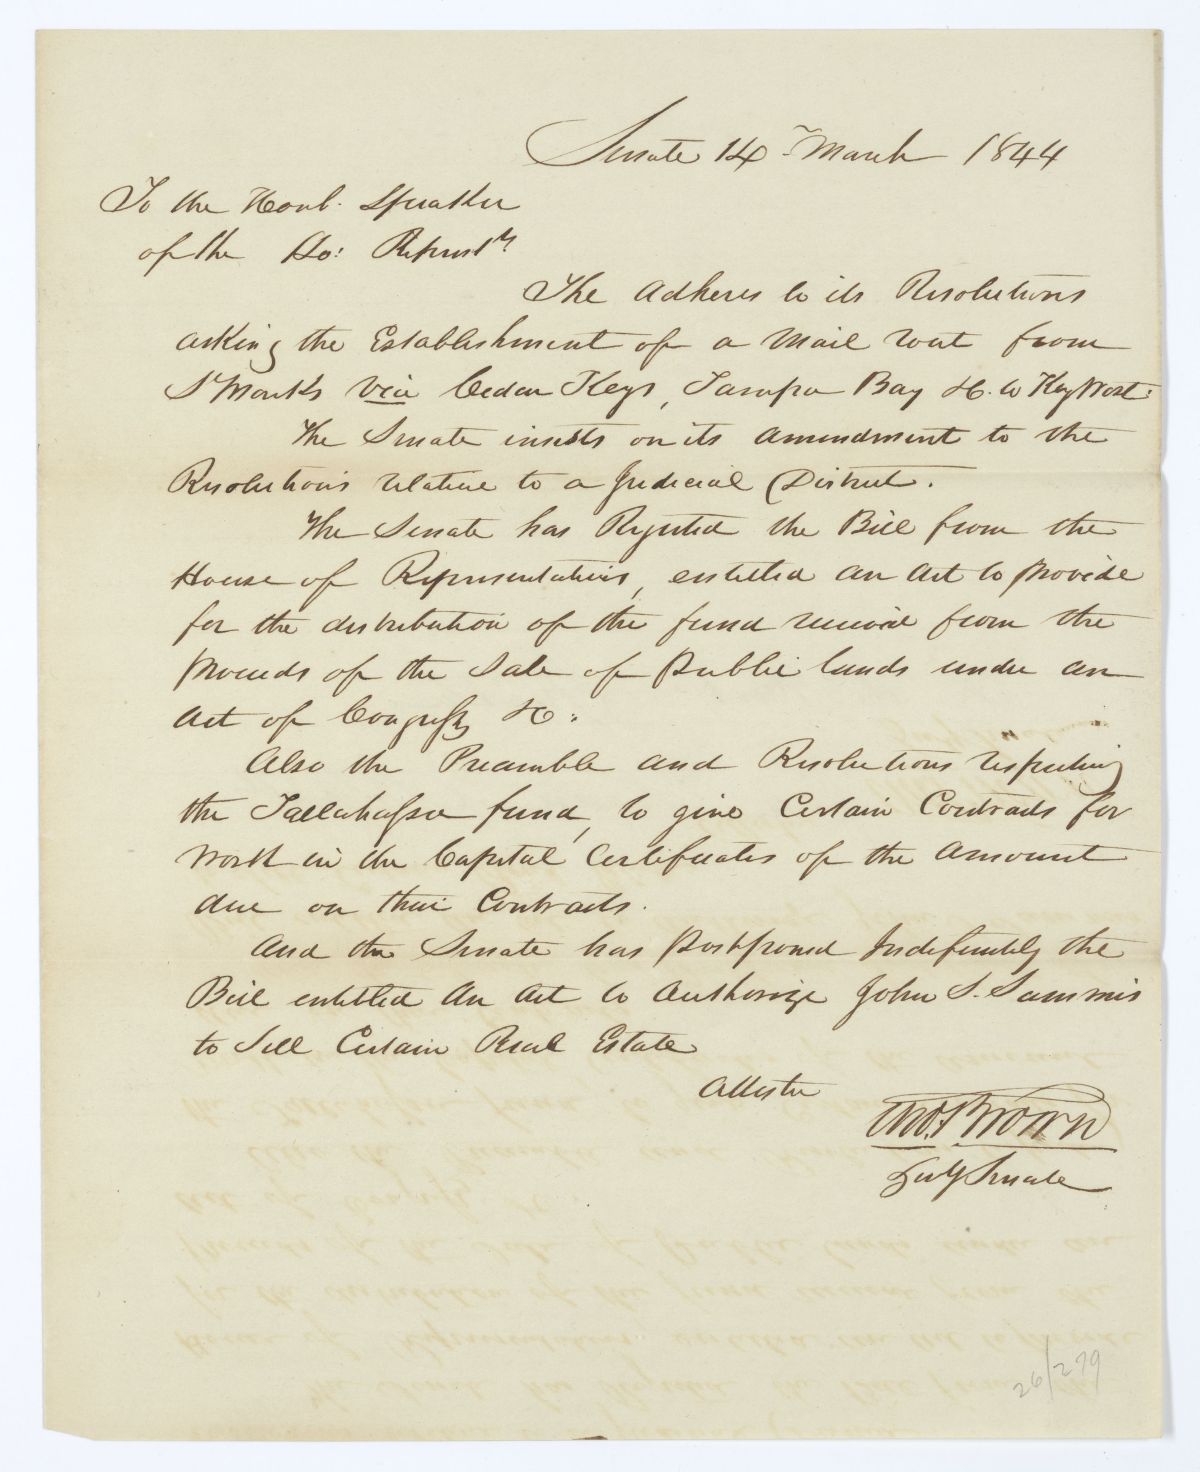 Senate 14th March 1844
To the Honl. Speaker
of the Ho: Represtvs
The Adheres to its Resolutions
asking the Establishment of a Mail rout from
St Marks via Cedar Keys, Tampa Bay &c. to Key West.
The Senate insists on its amendment to the
Resolutions relative to a Judicial District.
The Senate has Rejected the Bill from the
House of Representatives, entitled an Act to provide
for the distribution of the fund received from the
proceeds of the Sale of Public lands under an
Act of Congress &c:
Also the Preamble and Resolutions respecting
the Tallahassee fund, to give Certain Contracts for
work in the Capitol Certificates of the Amount
due on their Contracts.
And the Senate has Postponed Indefinitely the
Bill entitled An Act to Authorize John S. Sammis
to Sell Certain Real Estate
Attest
Tho. Brown
Secy Senate
26/279